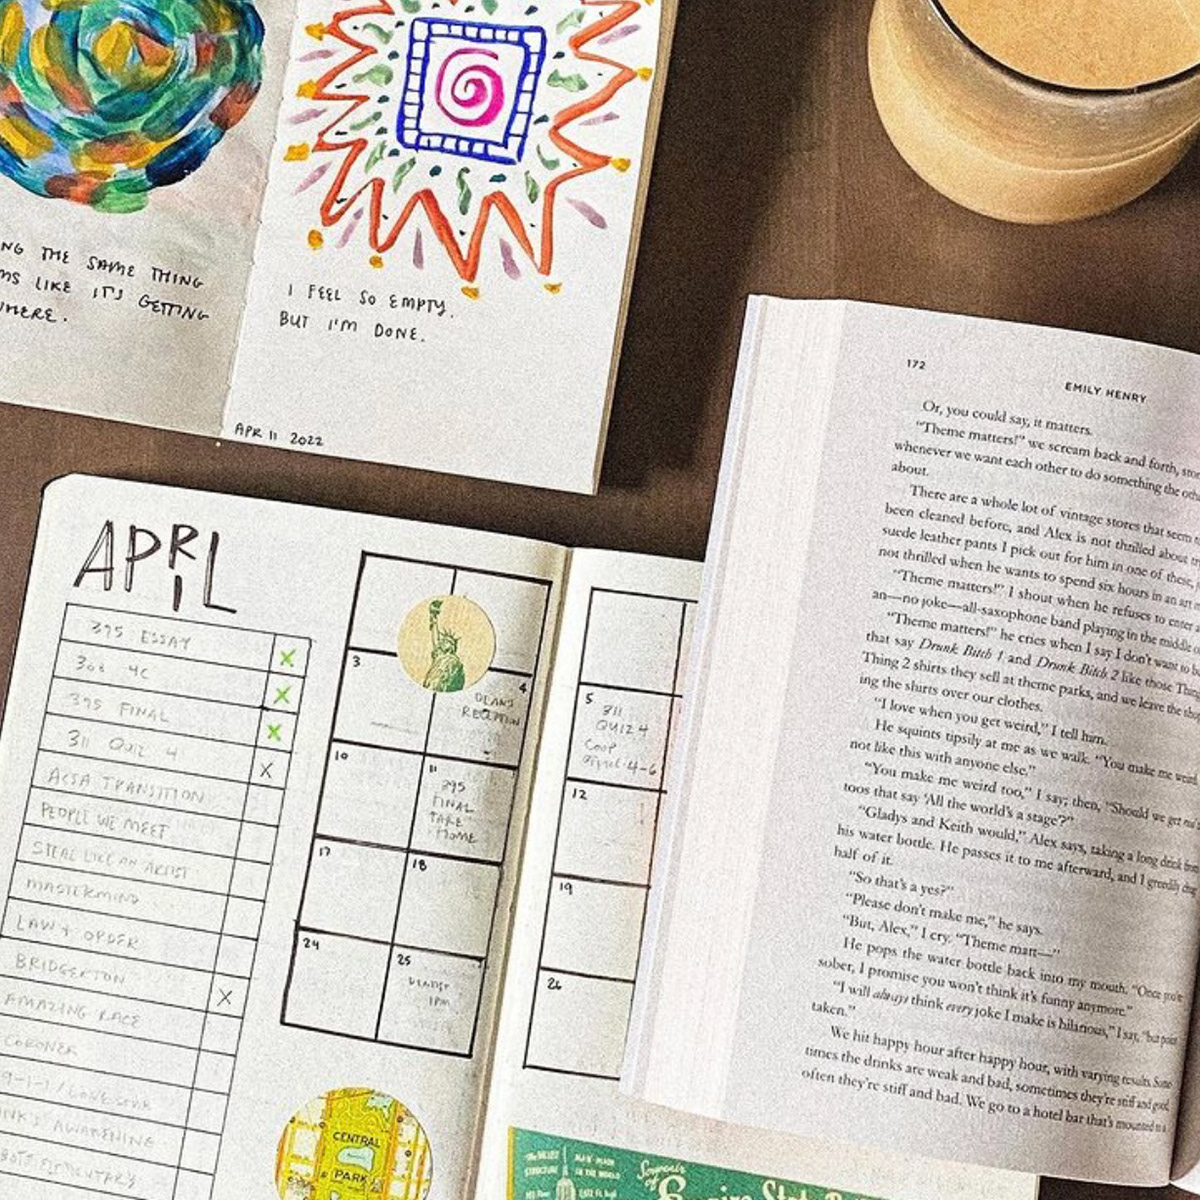 NG THE SAME THING
MS LIKE IT'S GETTING
WHERE.
I FEEL SO EMPTY.
BUT I'M DONE.
APR 11 2022
APRIL
395 ESSAY X
308 4C X
395 FINAL X
311 QUIZ 4 X
ACSA TRANSITION
PEOPLE WE MEET
STEAL LIKE AN ARTIST
MASTERMIND
LAW & ORDER
BRIDGERTON X
AMAZING RACE
CORONER
9-1-1 / LONE STAR
NK'S AWAKENING
BOTT ELEMENTARY
3
4
DEAN'S
RECEPTION
10
11
395
FINAL
TAKE
HOME
17
18
24
25
1PM
5
311
QUIZ 4
COOP
April 4-6
12
19
26
CENTRAL
PARK
Souvenir
of
Empire State
172
EMILY HENRY
Or, you could say, it matters.
"Theme matters!" we scream back and forth,
whenever we want each other to do something the
about.
There are a whole lot of vintage stores that seem
been cleaned before, and Alex is not thrilled about
suede leather pants I pick out for him in one of these,
not thrilled when he wants to spend six hours in an art
"Theme matters!" I shout when he refuses to enter a
an—no joke—all-saxophone band playing in the middle
"Theme matters!" he cries when I say I don't want to
that say Drunk Bitch 1 and Drunk Bitch 2 like those
Thing 2 shirts they sell at theme parks, and we leave the
ing the shirts over our clothes.
"I love when you get weird," I tell him.
He squints tipsily at me as we walk. "You make me weird
not like this with anyone else."
"You make me weird too," I say; then, "Should we get
toos that say 'All the world's a stage'?"
"Gladys and Keith would," Alex says, taking a long drink from
his water bottle. He passes it to me afterward, and I greedily
half of it.
"So that's a yes?"
"Please don't make me," he says.
"But, Alex," I cry. "Theme matt—"
He pops the water bottle back into my mouth. "Once you're
sober, I promise you won't think it's funny anymore."
"I will always think every joke I make is hilarious," I say, "but point
taken."
We hit happy hour after happy hour, with varying results. Some
times the drinks are weak and bad, sometimes they're stiff and good,
often they're stiff and bad. We go to a hotel bar that's mounted